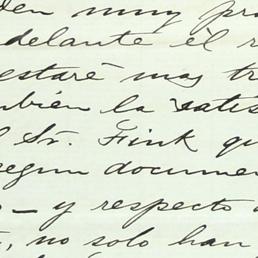 en muy pro
delante èl r
estaré mas tr
mbién la satis
l Sr. Fink qu
segun docume
— y respecto
, no solo han